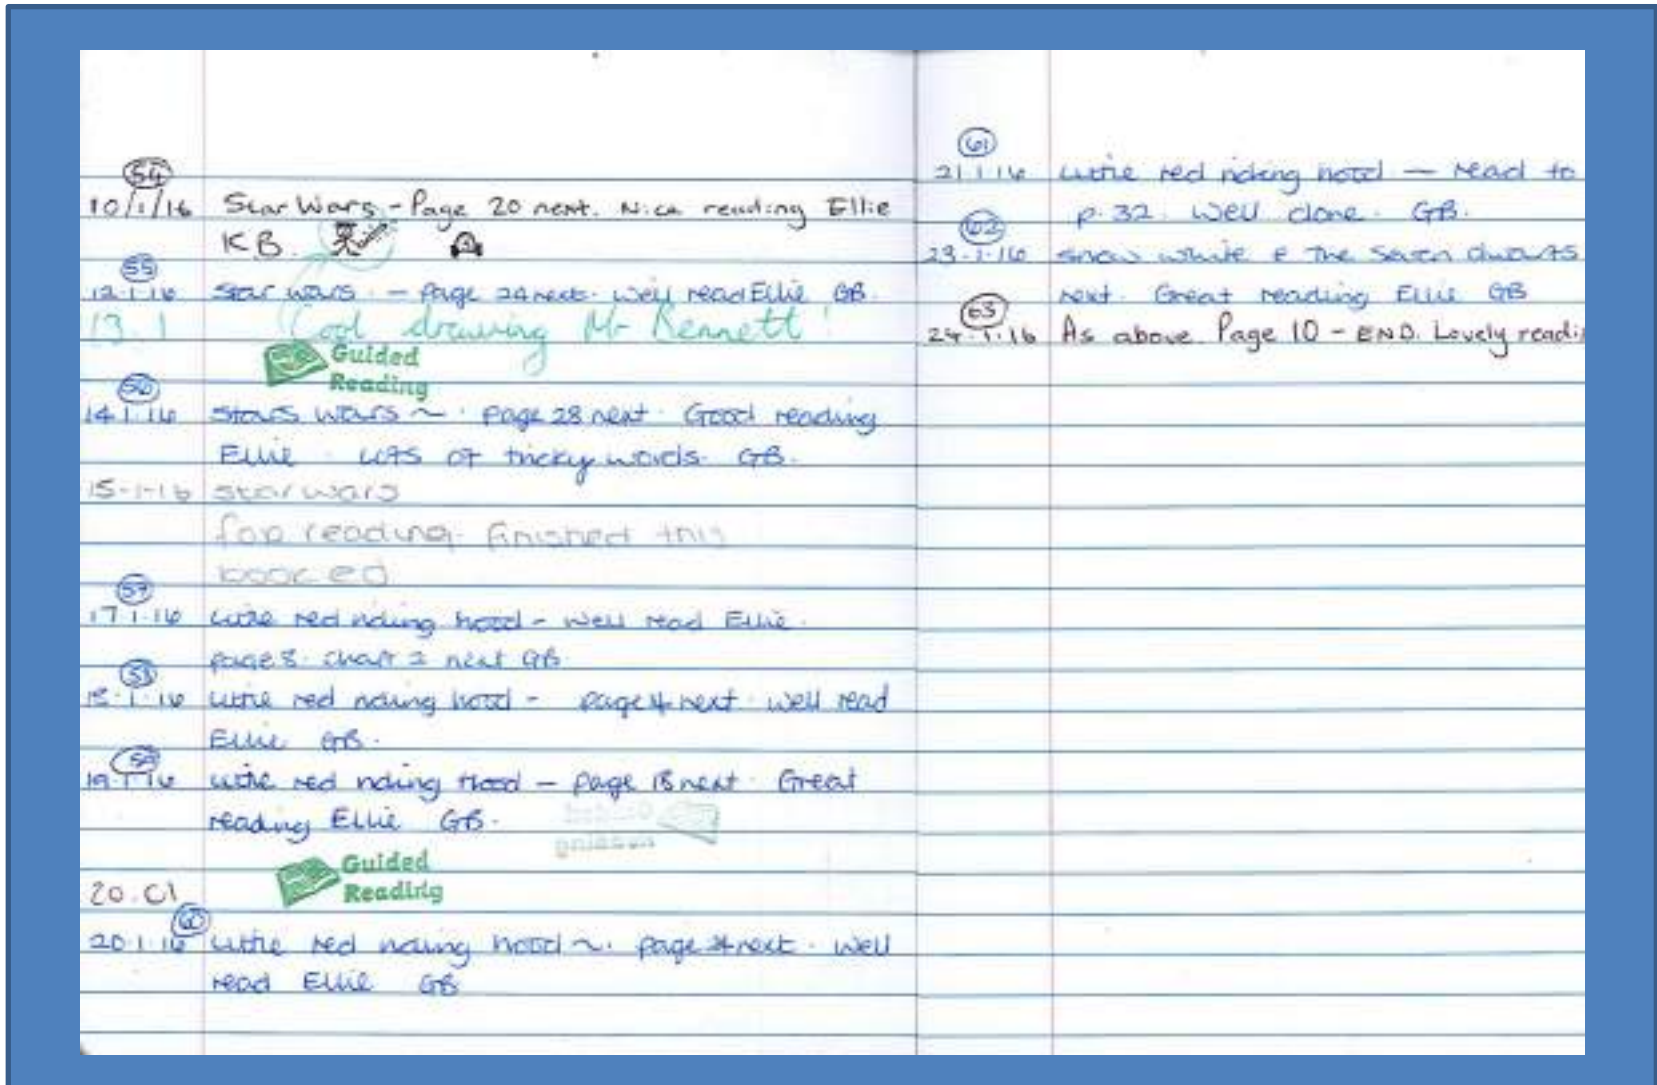 54
10/1/16 Star Wars - Page 20 next. Nice reading Ellie
KB.
55
12.1.16 Star wars. - Page 24 next. Well read Ellie GB.
13.1 Cool drawing Mr Kennett!
Guided
Reading
56
14.1.16 Stars wars ~. page 28 next. Good reading
Ellie. Lots of tricky words. GB.
15-1-16 star wars
fop reading. finished this
book ed
57
17.1.16 Little red riding hood - well read Ellie.
page 8. chapt 2 next GB.
58
18.1.16 Little red riding hood - page next. well read
Ellie GB.
59
19.1.16 Little red riding Hood - page 18 next. Great
reading Ellie GB.
Guided
Reading
20.01
60
20.1.16 Little red riding hood ~. page 24 next. Well
read Ellie GB
61
21.1.16 Little red riding hood - read to
p.32. Well done. GB.
62
23.1.16 snow white & the seven dwarfs
next. Great reading Ellie GB
63
24.1.16 As above. Page 10 - END. Lovely readi